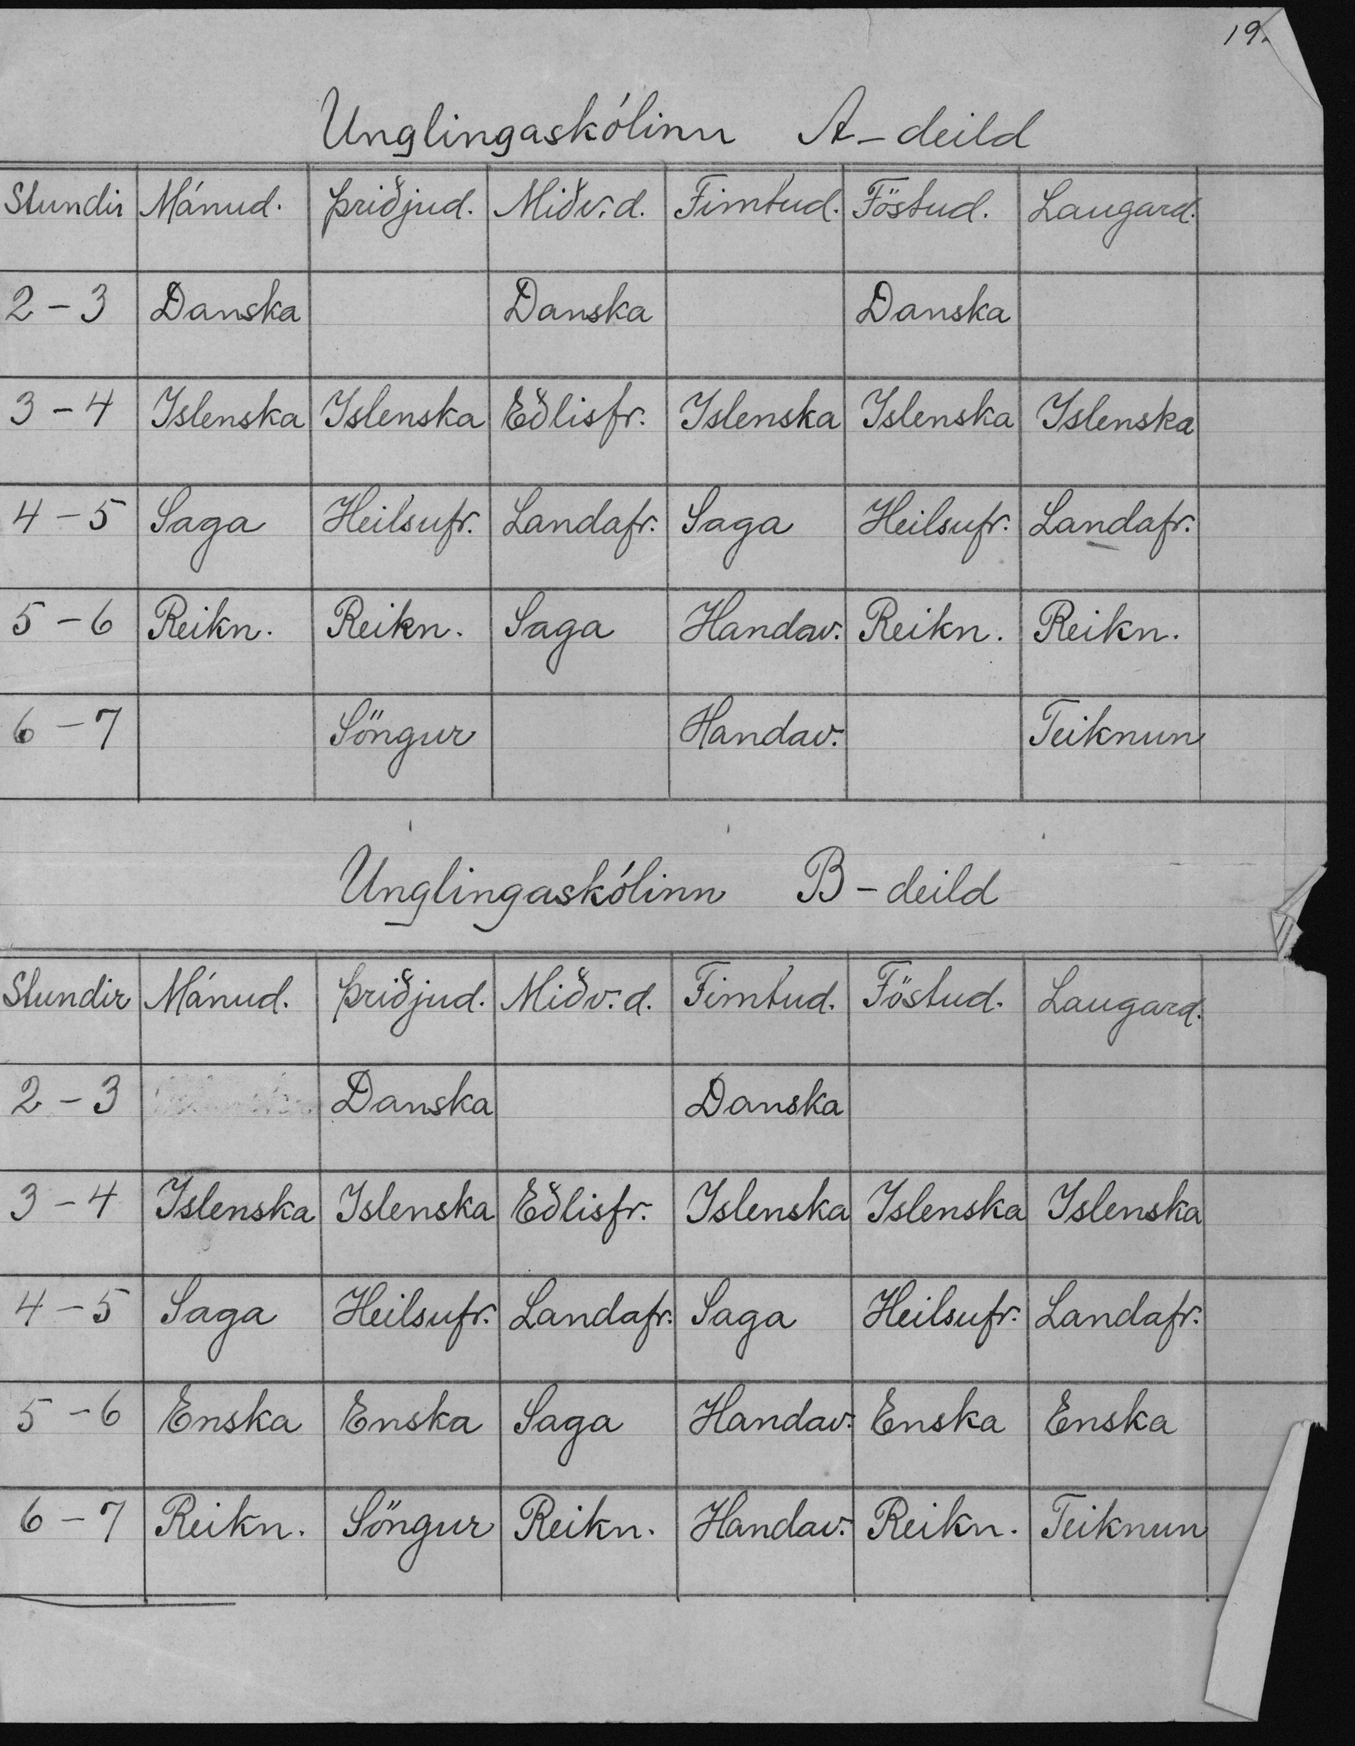 19.
Unglingaskólinn A-deild
Stundir Mánud. Þriðjud. Miðv.d. Fimtud. Föstud. Laugard.
2-3 Danska Danska Danska
3-4 Islenska Islenska Eðlisfr. Islenska Islenska Islenska
4-5 Saga Heilsufr. Landafr. Saga Heilsufr. Landafr.
5-6 Reikn. Reikn. Saga Handav. Reikn. Reikn.
6-7 Söngur Handav. Teiknun
Unglingaskólinn B-deild
Stundir Mánud. Þriðjud. Miðv.d. Fimtud. Föstud. Laugard.
2-3 Danska Danska
3-4 Islenska Islenska Eðlisfr. Islenska Islenska Islenska
4-5 Saga Heilsufr. Landafr. Saga Heilsufr. Landafr.
5-6 Enska Enska Saga Handav. Enska Enska
6-7 Reikn. Söngur Reikn. Handav. Reikn. Teiknun